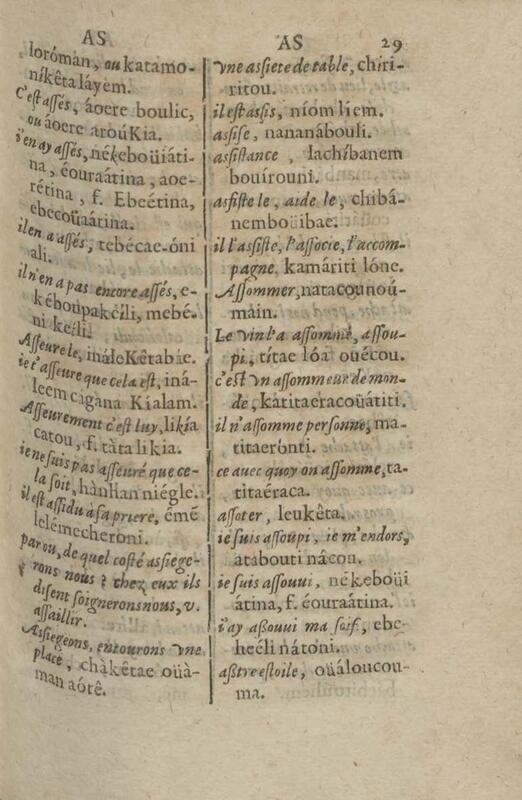 AS
loróman, ou katamo-
níkêta láyem.
C'est assés, áoere boulic,
ou áoere aroúKia.
i'en ay assés, nékeboüiáti-
na, éouraátina, aoe-
rétina, f. Ebeétina,
ebecoüaátina.
il en a assés, tebécae-óni
ali.
il n'en a pas encore assés, e-
kéboüpakéili, mebé-
ni keili.
Asseure le,ináleKêtabae.
ie t'asseure que cela est, iná-
leem cágana Kialam.
Asseurement c'est luy, likía
catou, f. tàta likia.
ie ne suis pas asseuré que ce-
la soit, hànhan niégle.
il est assidu à sa priere, émé
lelémecheroni.
par ou, de quel costé assiege-
rons nous ? chez eux ils
disent soignerons nous, v.
assaillir.
Assiegeons, entourons vne
place, chàkêtae oüà-
man aótê.
AS 29
vne assiete de table, chiri-
ritou.
il est assis, níom liem.
assise, nananábouli.
assistance, lachíbanem
bouírouni.
assiste le, aide le, chibá-
nemboüibae.
il l'assiste, l'associe, l'accom-
pagne, kamáriti lóne.
Assommer, natacounoú-
máin.
Le vin l'a assommé, assou-
pi, títae lóa ouécou.
c'est vn assommeur de mon-
de, katitaeracoüátiti.
il n'assomme personne, ma-
titaerónti.
ce auec quoy on assomme, ta-
titaéraca.
assoter, leukêta.
ie suis assoupi, ie m'endors,
atabouti nácou.
ie suis assouui, nékeboüi
átina, f. éouraátina.
i'ay assouui ma soif, ebe-
heéli nátoni.
astre estoile, oüáloucou-
ma.